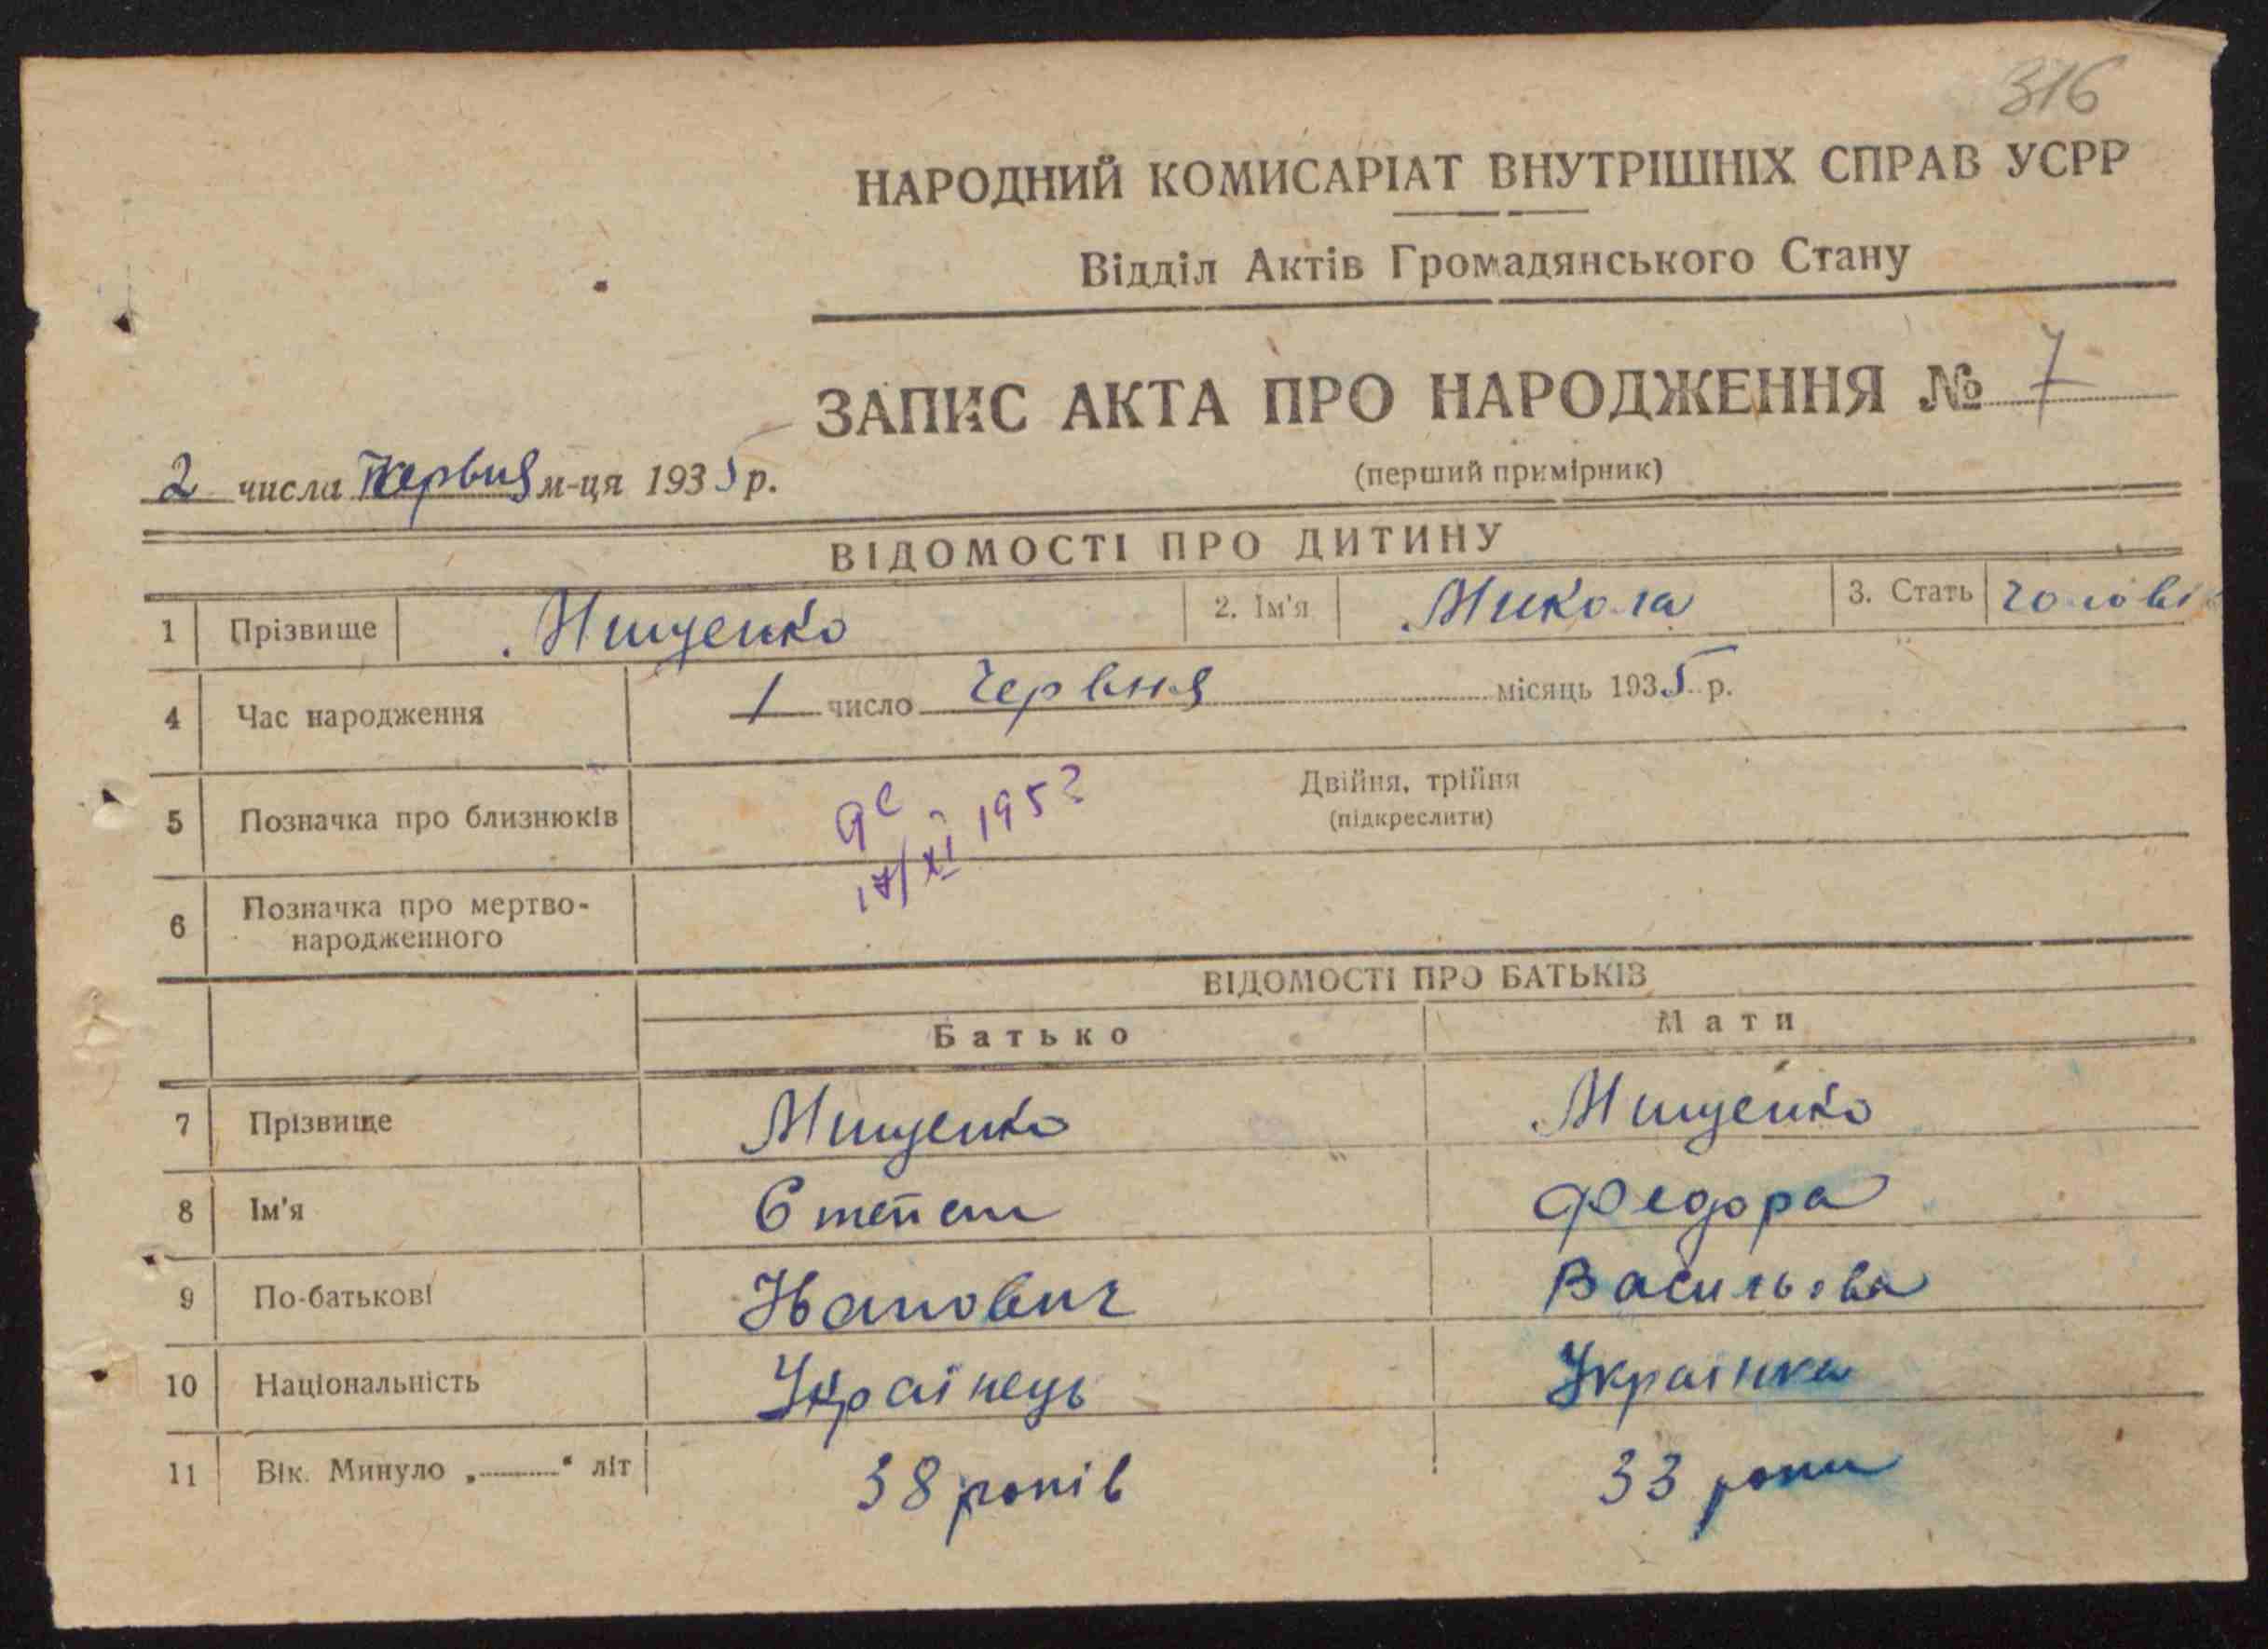 316
НАРОДНИЙ КОМИСАРІАТ ВНУТРІШНІХ СПРАВ УСРР
Відділ Актів Громадянського Стану
ЗАПИС АКТА ПРО НАРОДЖЕННЯ № 7
(перший примірник)
2 числа Червня м-ця 1935 р.
ВІДОМОСТІ ПРО ДИТИНУ
1 Прізвище Мищенко 2. Ім'я Микола 3. Стать чолові
4 Час народження 1 число Червня місяць 1935 р.
5 Позначка про близнюків Двійня, трійня
(підкреслити)
17/XI 195
6 Позначка про мертво-
народженного
ВІДОМОСТІ ПРО БАТЬКІВ
Батько Мати
7 Прізвище Мищенко Мищенко
8 Ім'я Степан Федора
9 По-батькові Іванович Василь
10 Національність Українець Українка
11 Вік. Минуло „ “ літ 38 років 33 роки